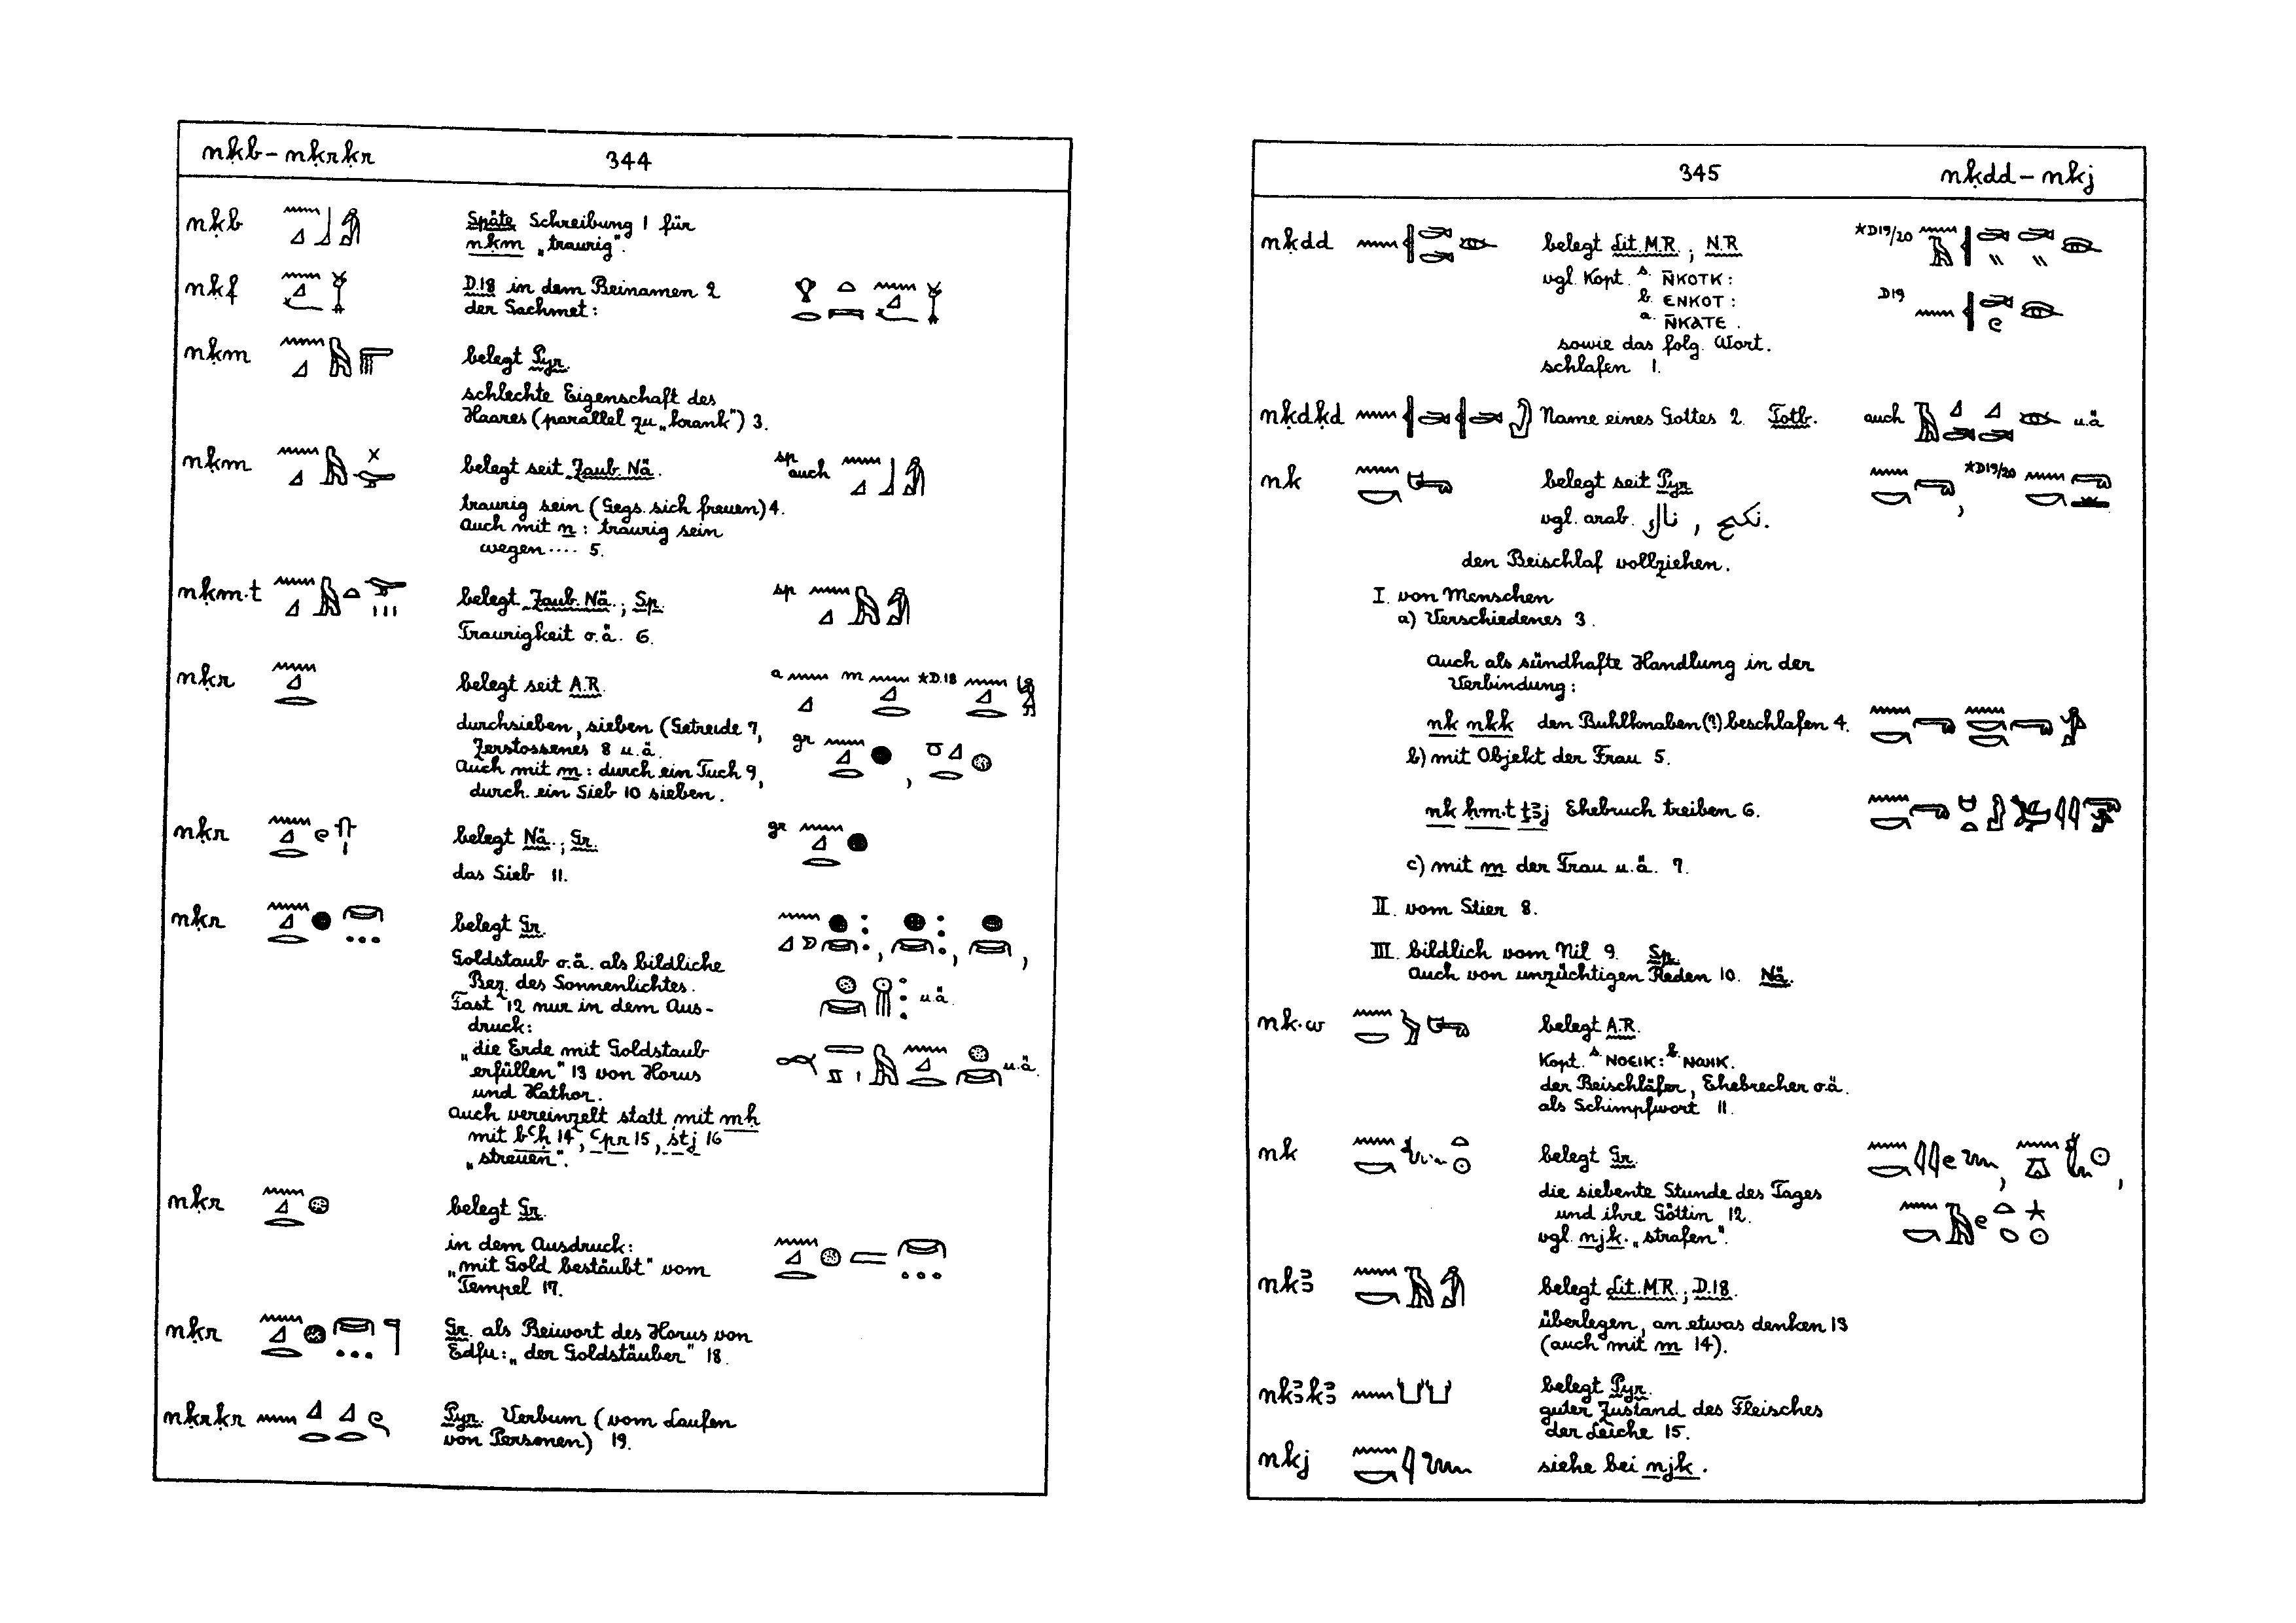 nḳb – nḳrḳr 344
nḳb Späte Schreibung 1 für
nḳm „traurig".
nḳf D.18 in dem Beinamen 2
der Sachmet:
nḳm belegt Pyr.
schlechte Eigenschaft des
Haares (parallel zu „krank") 3.
nḳm belegt seit Zaub. Nä. sp auch
traurig sein (Gegs. sich freuen) 4.
Auch mit n: traurig sein
wegen .... 5.
nḳm.t belegt Zaub. Nä.; Sp. sp
Traurigkeit o.ä. 6.
nḳr belegt seit A.R. a m *D.18
durchsieben, sieben (Getreide 7,
Zerstossenes 8 u.ä. gr
Auch mit m: durch ein Tuch 9,
durch ein Sieb 10 sieben.
nḳr belegt Nä.; Gr. gr
das Sieb 11.
nḳr belegt Gr.
Goldstaub o.ä. als bildliche
Bez. des Sonnenlichtes. u.ä.
Fast 12 nur in dem Aus-
druck:
„die Erde mit Goldstaub
erfüllen" 13 von Horus u.ä.
und Hathor.
Auch vereinzelt statt mit mḥ
mit bꜥḥ 14, ꜥpr 15, śtj 16
„streuen".
nḳr belegt Gr.
in dem Ausdruck:
„mit Gold bestäubt" vom
Tempel 17.
nḳr Gr. als Beiwort des Horus von
Edfu: „der Goldstäuber" 18.
nḳrḳr Pyr. Verbum (vom Laufen
von Personen) 19.
345 nḳdd – nkj
nḳdd belegt Lit. M.R.; N.R *D19/20
vgl. Kopt. s. N̄KOTK:
b. ENKOT: D19
a. N̄KATE.
sowie das folg. Wort.
schlafen 1.
nḳdḳd Name eines Gottes 2. Totb. auch u.ä
nk belegt seit Pyr *D19/20
vgl. arab. ناك, نكح.
den Beischlaf vollziehen.
I. von Menschen
a) Verschiedenes 3.
Auch als sündhafte Handlung in der
Verbindung:
nk nkk den Buhlknaben (?) beschlafen 4.
b) mit Objekt der Frau 5.
nk ḥm.t ṯꜣj Ehebruch treiben 6.
c) mit m der Frau u.ä. 7.
II. vom Stier 8.
III. bildlich vom Nil 9. Sp.
Auch von unzüchtigen Reden 10. Nä.
nk.w belegt A.R.
Kopt. s. NOEIK: b. NωIK.
der Beischläfer, Ehebrecher o.ä.
als Schimpfwort 11.
nk belegt Gr.
die siebente Stunde des Tages
und ihre Göttin 12.
vgl. njk „strafen".
nkꜣ belegt Lit. M.R.; D.18.
überlegen, an etwas denken 13
(auch mit m 14).
nkꜣkꜣ belegt Pyr.
guter Zustand des Fleisches
der Leiche 15.
nkj siehe bei njk.